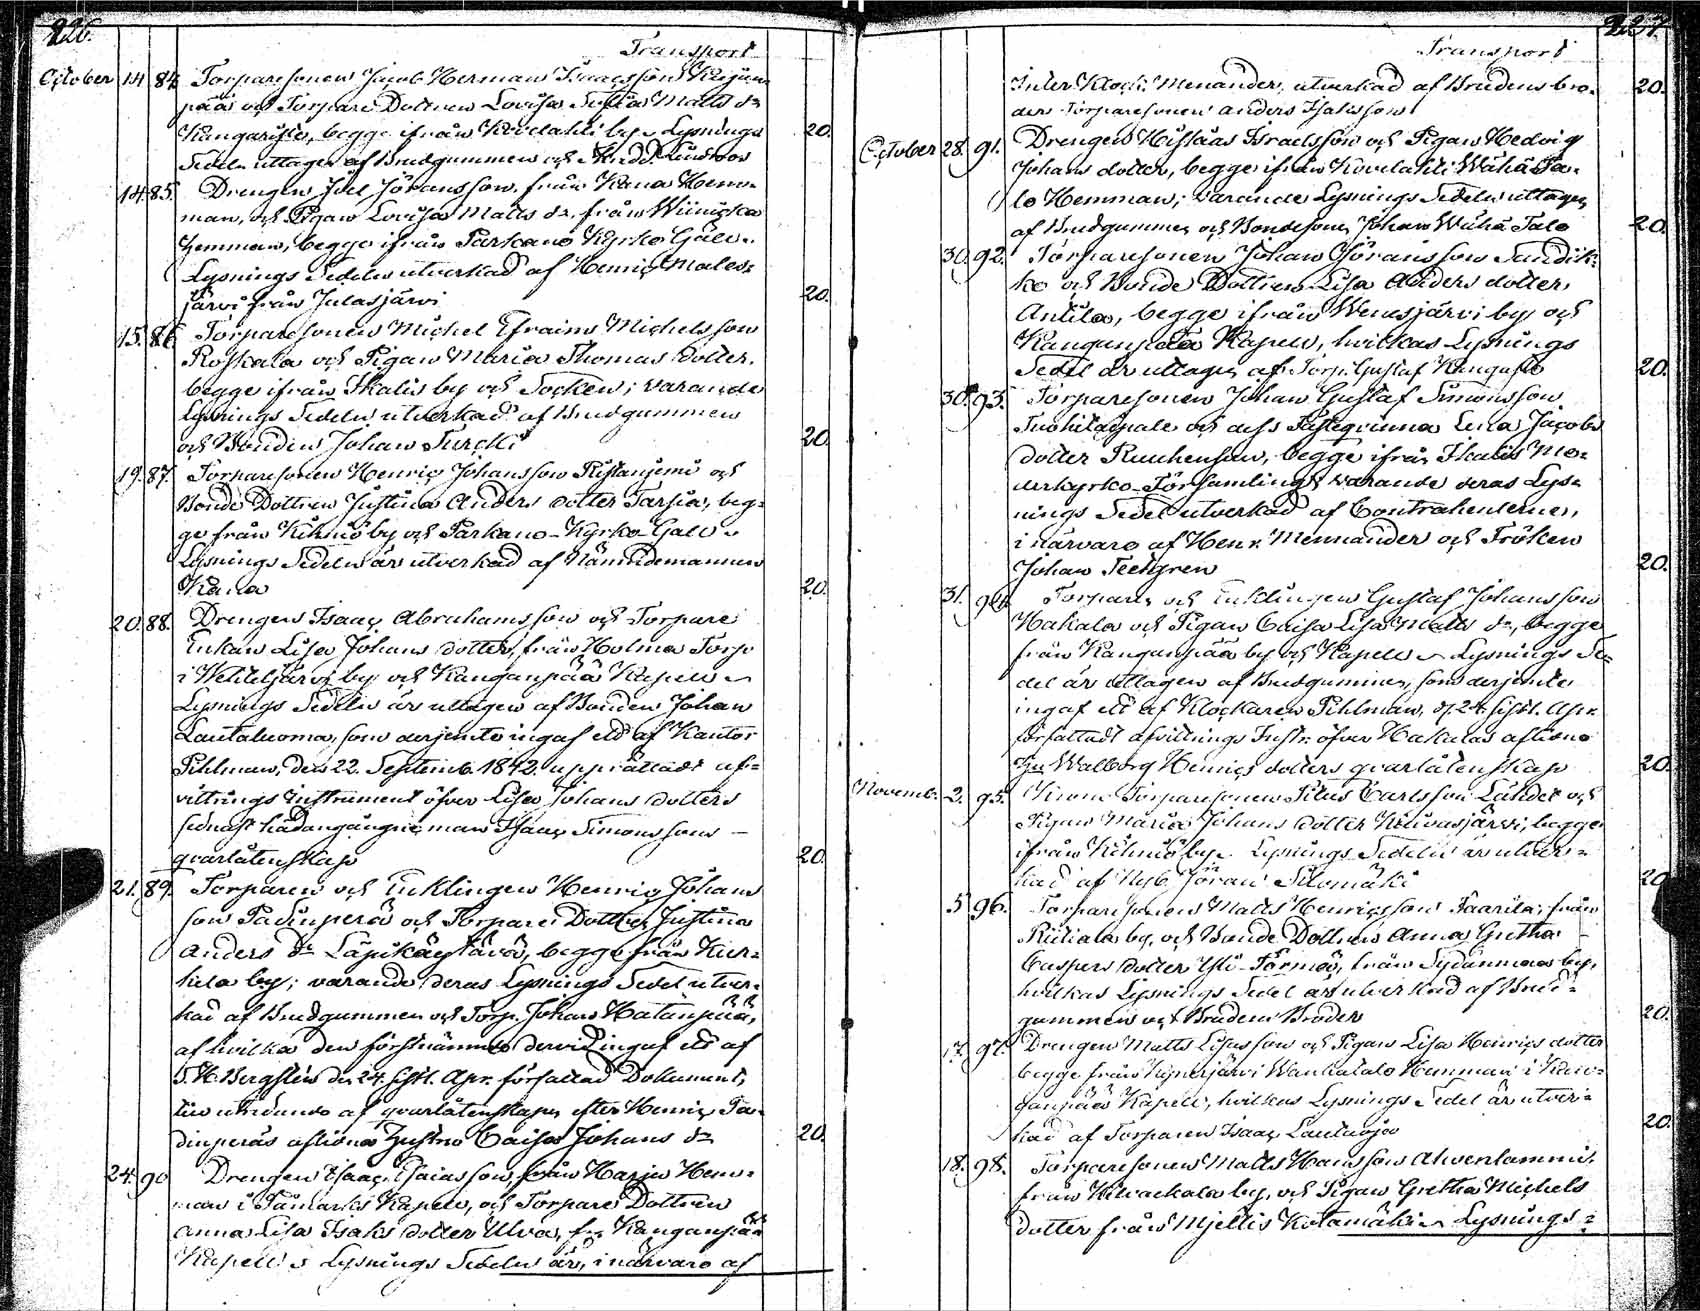 226.
Transport
October 14 84. Torparesonen Jacob Herman Isaacsson
och Torpare Dottren Lovisa Matts dr
begge ifrån Kovelahti by. Lysnings 20.
Sedeln uttagen af Brudgummen och
14. 85. Drengen Joel Göransson från Kana Hem-
man, och Pigan Lovisa Matts dr. från
hemman, begge ifrån Parkano Kyrko Gäll.
Lysnings Sedeln utverkad af Henric
järvi från Julasjärvi 20.
15. 86 Torparesonen Michel Efraim Michelsson
Roskala och Pigan Maria Thomas dotter,
begge ifrån Ikalis by och Socken; varande
Lysnings Sedeln utverkad af Brudgummen
och Bonden Johan Turcki 20.
19. 87. Torparesonen Henric Johansson Ristaniemi och
Bonde Dottren Justina Anders dotter Tarsia, beg-
ge från Kihniö by och Parkano Kyrko Gäll.
Lysnings Sedeln är utverkad af Nämndemannen
Kana 20.
20. 88. Drengen Isaac Abrahamsson och Torpare
Enkan Lisa Johans dotter, från Holma Torp
i by och Kanganpää Kapell
Lysnings Sedeln är uttagen af Bonden Johan
Lautaluoma, som derjemte ingaf ett af Kantor
Pihlman, den 22. Septemb. 1842. upprättadt af-
vittrings instrument öfver Lisa Johans dotters
sednast hädangångne man Isaac Simonssons -
qvarlåtenskap 20.
21. 89. Torparen och Enklingen Henric Johans
son Padinperä och Torpare Dottren Justina
Anders dr begge från
kila by; varande deras Lysnings Sedel utver-
kad af Brudgummen och Torp. Johan Hatanpää,
af hvilka den förstnämnde dervid ingaf ett af
Bergsten den 24. sistl. Apr. författad Dokument,
af qvarlåtenskapen efter Henric Pa-
dinperäs aflidna hustru Caisa Johans dr 20.
24. 90 Drengen Isaac Esaiasson, från Harju Hem-
man i Kapell, och Torpare Dottren
Anna Lisa Isaks dotter Ulva, fr. Kanganpää
Kapell. Lysnings Sedeln är, i närvaro af
237.
Transport
Klock. Menander, utverkad af Brudens bro- 20.
der Torparesonen Anders Isaksson
October 28. 91. Drengen Israelsson och Pigan Hedvig
Johans dotter, begge ifrån Kovelahti Wähä Ta-
lo Hemman; varande Lysnings Sedeln uttagen
af Brudgummen och Bondesonen Johan Wähä Talo 20.
30. 92. Torparesonen Johan Göransson
ko och Bonde Dottren Lisa Anders dotter
Antila, begge ifrån Wenesjärvi by och
Kanganpää Kapell, hvilkas Lysnings
Sedel är uttagen af Torp. Gustaf 20.
30. 93. Torparesonen Johan Gustaf Simonsson
och dess Fästeqvinna Lena Jacobs
dotter begge ifrån Ikalis Mo-
derkyrko Församling; varande deras Lys-
nings Sedel utverkad af Contrahenterne,
i närvaro af Henr. Mennander och Fröken
Johan 20.
31. 94. Torparen och Enklingen Gustaf Johansson
Hakala och Pigan Caisa Lisa Matts dr, begge
från Kanganpää by och Kapell. Lysnings Se-
del är uttagen af Brudgummen, som derjemte
ingaf ett af Klockaren Pihlman, d. 24 sistl. Apr.
författadt afvittrings Instr. öfver Hakalas aflidna
hu Walborg Henrics dotters qvarlåtenskap 20.
Novemb. 2. 95. Krono Torparesonen Titus Carlsson Lähdet och
Pigan Maria Johans dotter begge
ifrån Kihniö by. Lysnings Sedeln är utver-
kad af Nyb. Göran 20
5 96. Torparesonen Matts Henricsson Saarila, från
Riitiala by, och Bonde Dottren Anna Gretha
Caspers dotter Yli-Törmä, från Sydänmaa by,
hvilkas Lysnings Sedel är utverkad af Brud-
gummen och Brudens Broder 20.
17. 97. Drengen Matts Lisasson och Pigan Lisa Henrics dotter
begge från Wankatalo Hemman i Kan-
ganpää Kapell, hvilkas Lysnings Sedel är utver-
kad af Torparen Isaac 20.
18. 98. Torparesonen Matts Hansson Ahvenlammi,
från by, och Pigan Gretha Michels
dotter från Mjettis Lysnings-